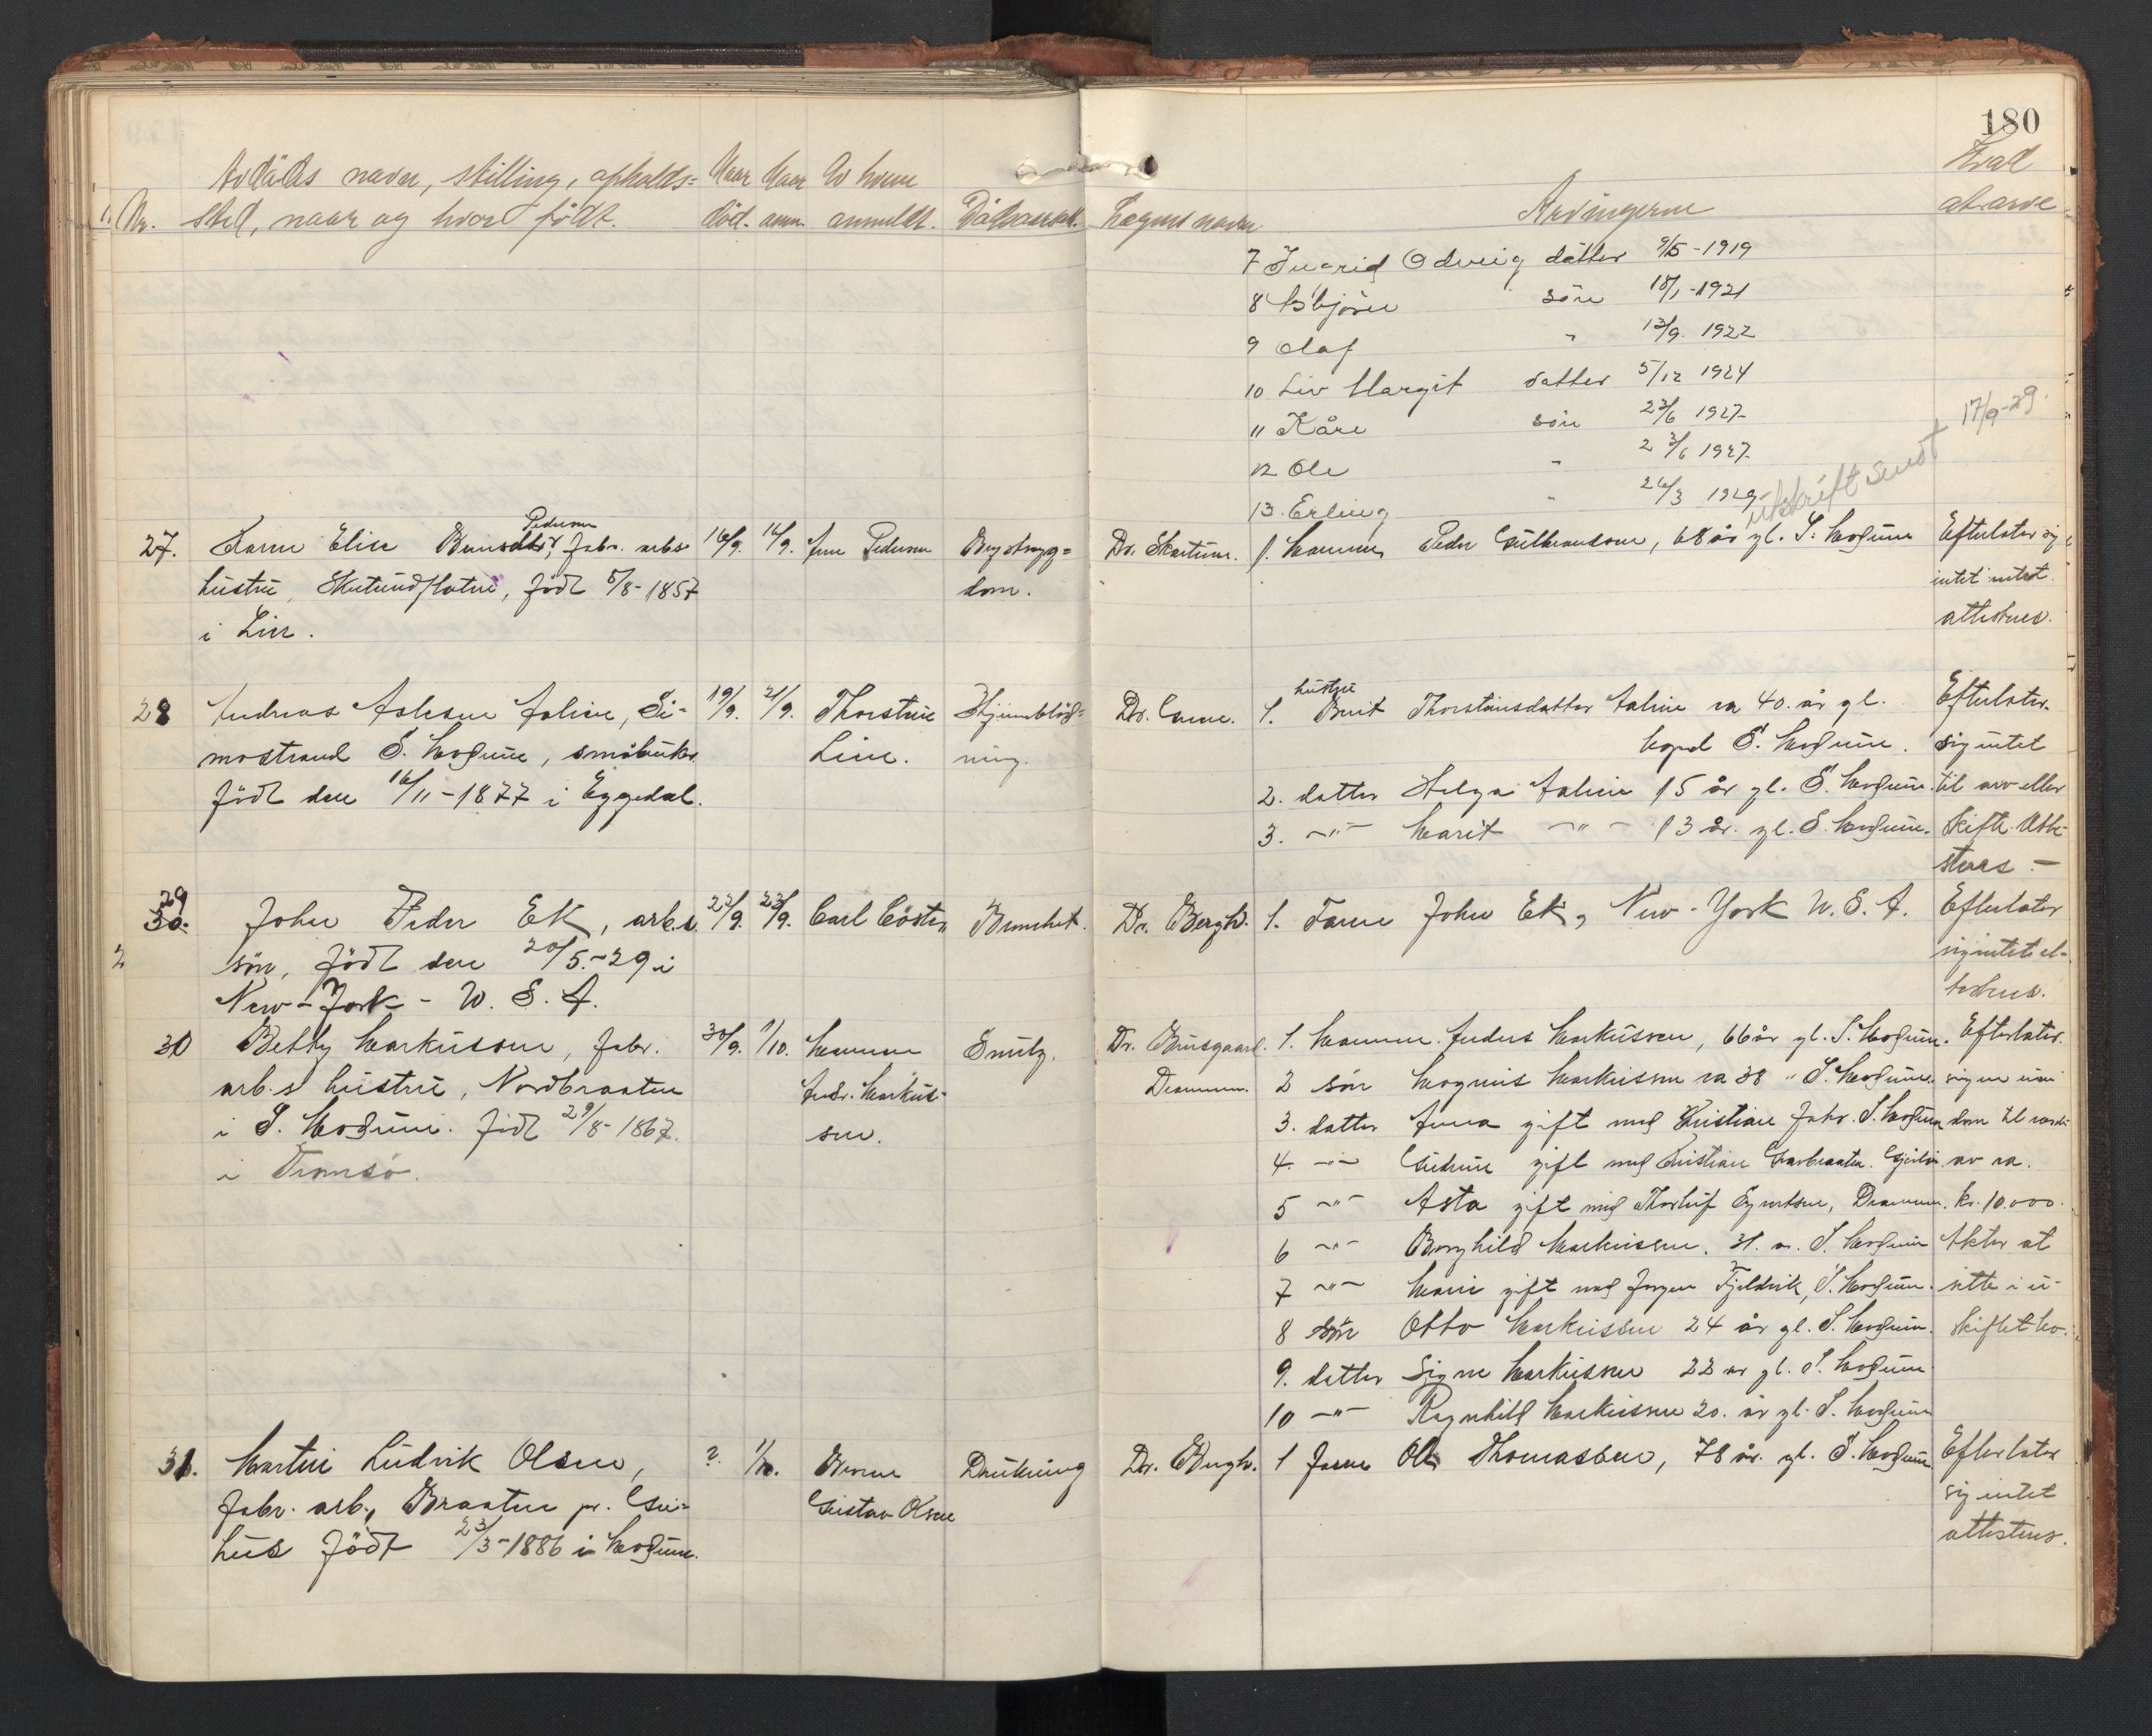 180
Avdödes navn, stilling, opholds= Naar Naar Av hvem Hvad
Nr. sted, naar og hvor född. död. anm. anmeldt. Dödsaarsak. Lægens navn Arvingerne at arve
7 Ingrid Odveig datter 9/5-1919
8 Asbjörn sön 18/1-1921
9 Olaf " 13/9. 1922
10 Liv Margit datter 5/12 1924
11 Kåre sön 23/6 1927-
12 Ole " 23/6 1927-
13. Erling " 26/3 1929-
17/9-29.
utskrift sendt
Pedersen
27. Karen Elise Berntsdtr, fabr. arbs 16/9. 16/9. Pedersen Brystsyg= Dr. Skartum. 1. Mannen Peder Gulbrandsen, 68 år gl. S. Modum Efterlater sig
hustru, Skutund/flaten, född 5/8-1857 dom. intet
i Lier. attesteres.
hustru
28 Andreas Aslesen Aalien, Si- 19/9. 21/9. Thorstein Hjerneblöd- Dr. 1. Berit Thorsteinsdatter Aalien ca 40. år gl. Efterlater.
mostrand S. Modum, småbruker Lien. ning. S. Modum. sig intet
född den 16/11-1877 i Eggedal. 2. datter Helga Aalien 15 år gl. S. Modum. til arv eller
3. -"- Marit -"- 13 år. gl. S. Modum. skifte. Atte-
steres. -
29
30. John Peder Ek, arb.s. 22/9. 23/9. Carl Cöster Dr. Bergh. 1. Faren John Ek, New-York U.S.A. Efterlater
2 sön, född den 20/5.-29 i sig intet at-
New-York - U. S. A. testeres.
30 Betty Markussen, fabr. 30/9. 1/10. Mannen Dr. Bruusgaard. 1. Mannen. Anders Markussen, 66 år gl. S. Modum. Efterlater.
arb.s hustru, Nordbraaten Andr. Markus- Drammen. 2 sön Magnus Markussen ca 38 " S. Modum. sig en eien
i S. Modum. född 29/8-1867. sen. 3. datter Anna gift med Kristian S. Modum dom til værdi
i Tromsö. 4. -"- Gudrun gift med Kristian av ca.
5 -"- Asta gift med Thorleif Drammen. kr. 10.000.
6 -"- Borghild Markussen. 31. a. S. Modum Akter at
7 -"- Marie gift med Jörgen Fjeldvik, S. Modum. sitte i u-
8 sön Otto Markussen 24 år gl. S. Modum. skiftet bo.
9. datter Signe Markussen 22 år gl. S. Modum
10 -"- Ragnhild Markussen 20. år gl. S. Modum
31. Martin Ludvik Olsen, ? 1/10. Broren Drukning Dr. Bergh. 1 Faren Ole Thomassen, 78 år. gl. S. Modum Efterlater
fabr. arb., Braaten pr. Gei- Gustav Olsen sig intet
hus född 23/3-1886 i Modum. attesteres.